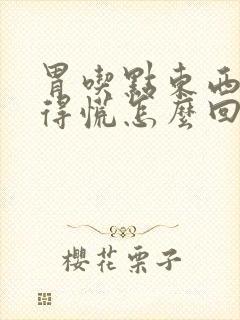 胃喫點東西
得慌怎麼回
櫻花栗子